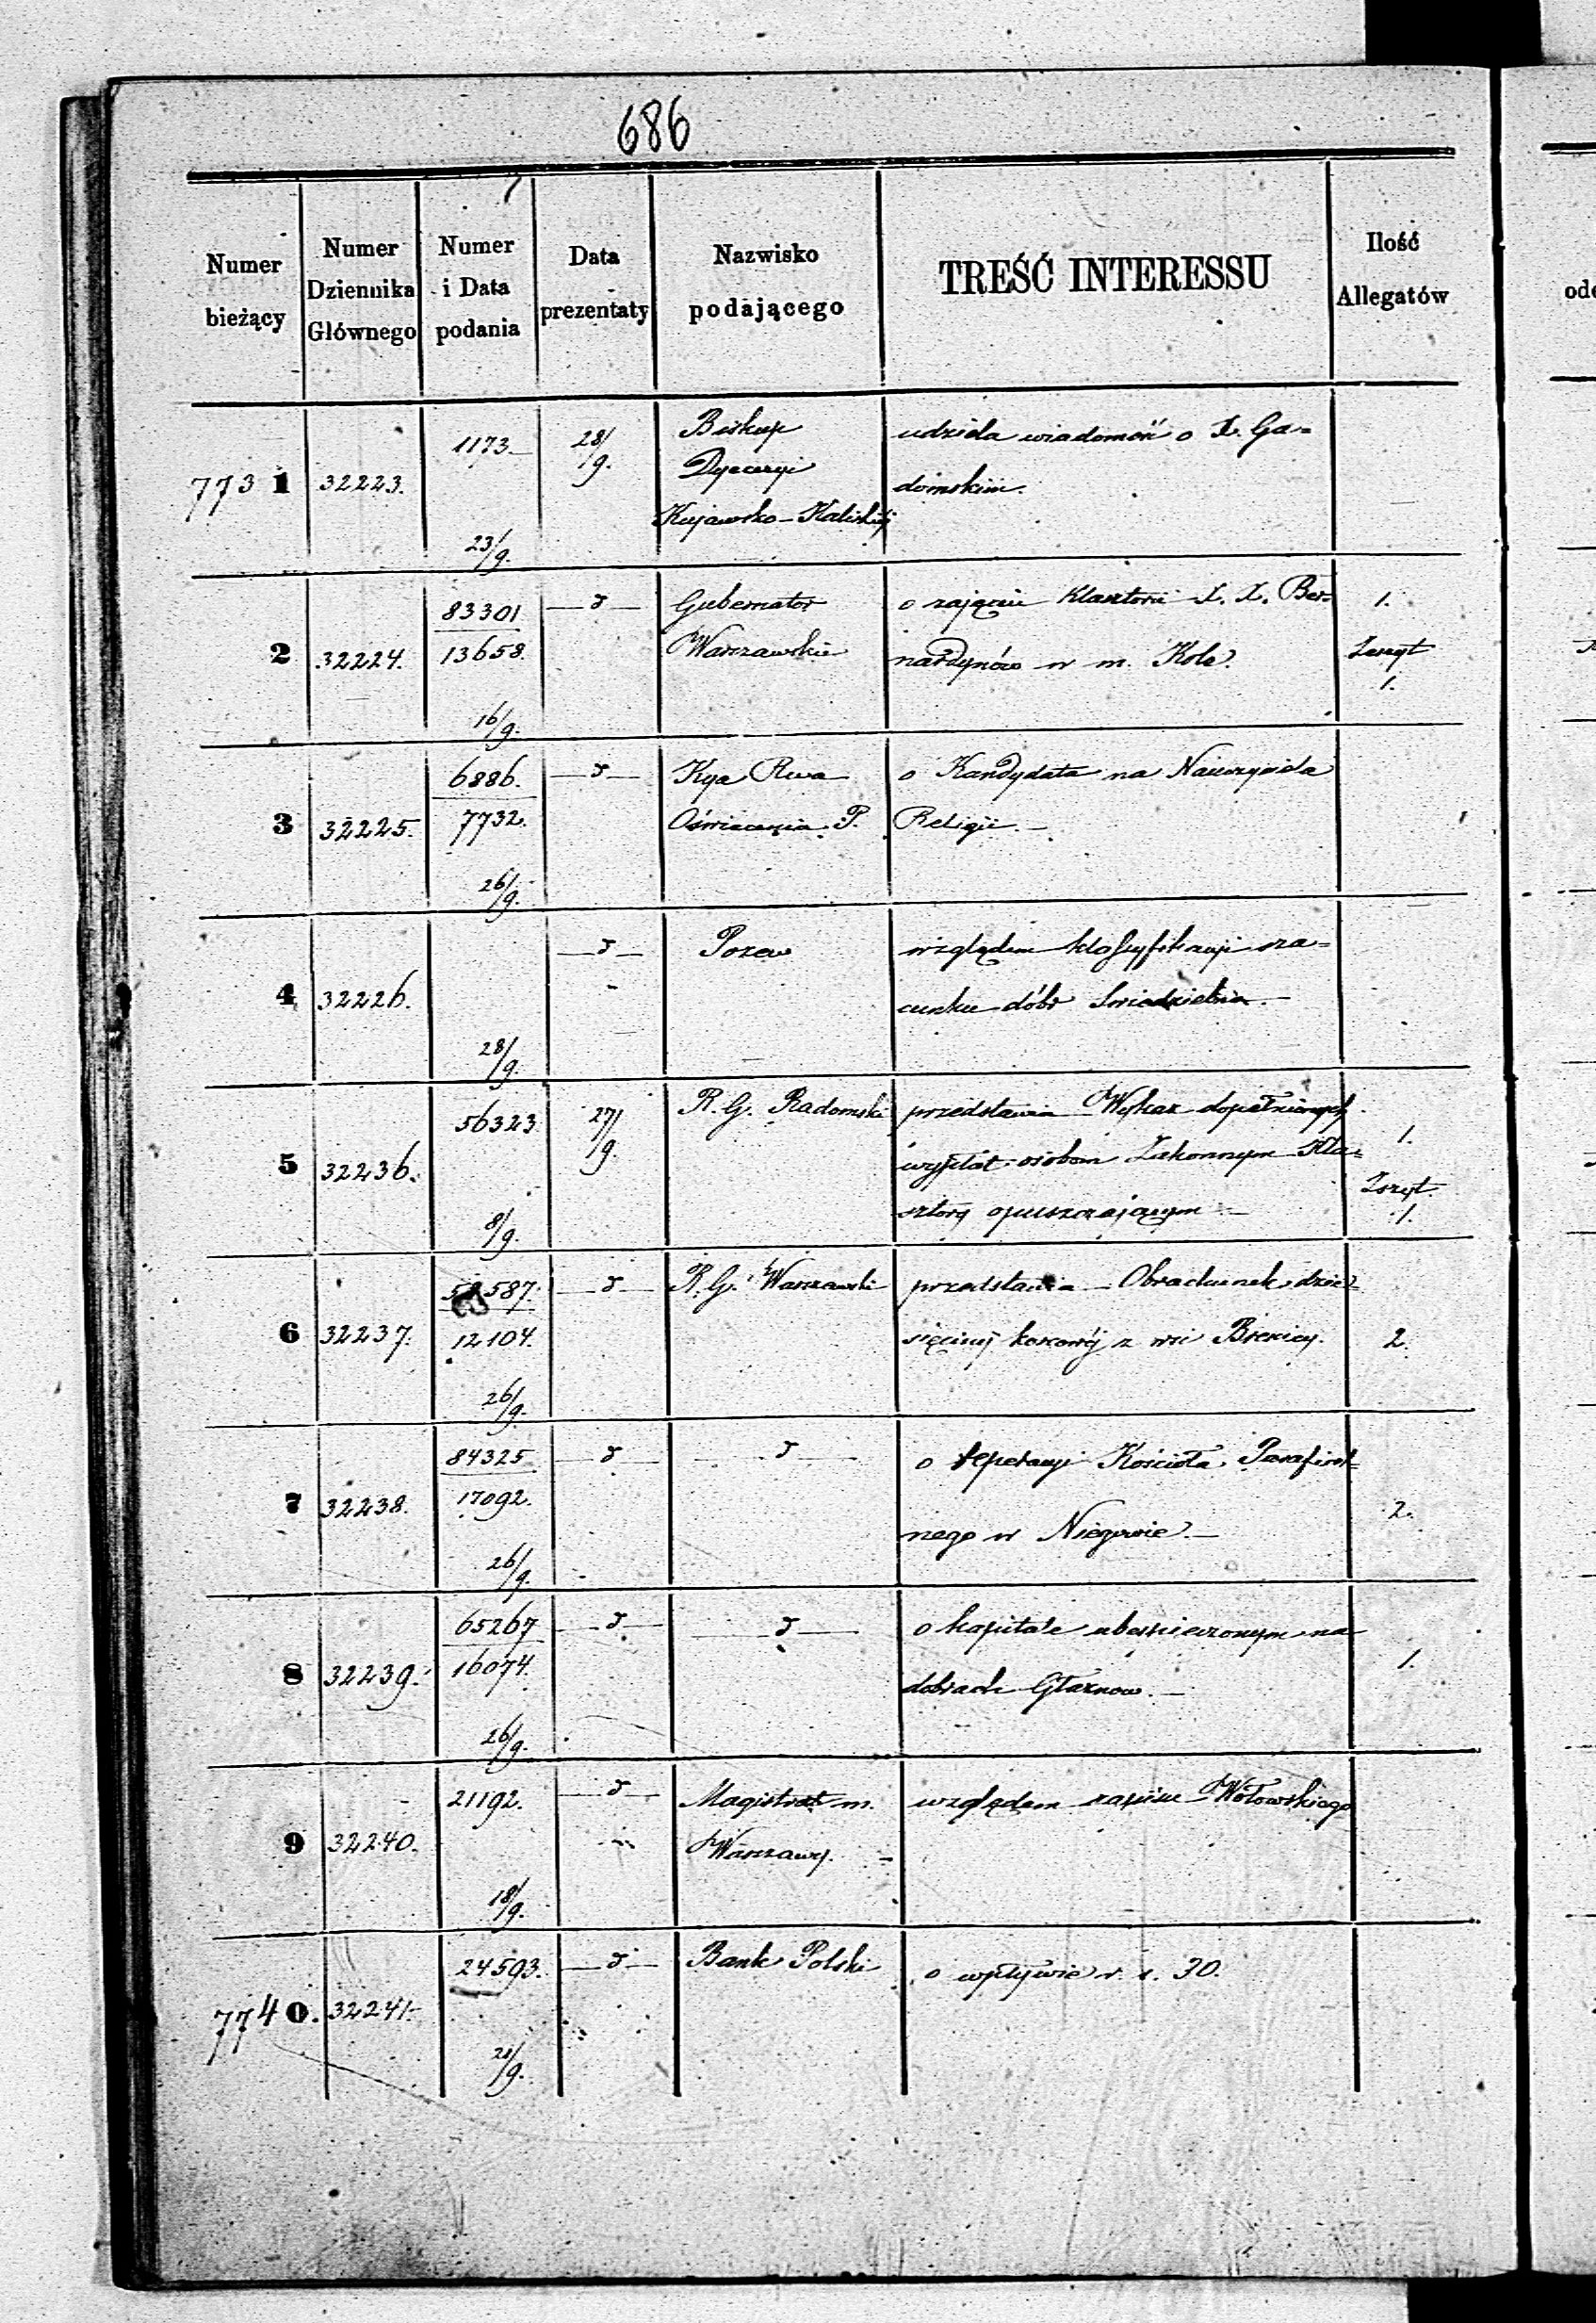 686
Numer bieżący
Numer Dziennika Głównego
Numer i Data podania
Data prezentaty
Nazwisko podającego
TREŚĆ INTERESSU
Ilość Allegatów
7731 32223. 1173. 23/9. 28/9. Biskup Dyecezyi Kujawsko-Kaliskiej udziela wiadomość o X. Ga=
domskim.
2 32224. 83301 13658. 16/9. d Gubernator Warszawski o zajęciu Klasztoru X. X. Ber=
nardynów w m. Kole. 1. Zeszyt 1.
3 32225. 6886. 7732. 26/9. d Kya Rwa Oświecenia P. o Kandydata na Nauczyciela
Religii.
4 32226. 28/9. d Pozew względem klassyfikacyi sza=
cunku dóbr
5 32236. 56323 8/9. 27/9. R. G. Radomski przedstawia Wykaz dopełnionych
wypłat osobom Zakonnym Kla=
sztory opuszczającym 1. Zszyt. 1.
6 32237. 587. 12104. 26/9. d R. G. Warszawski przedstawia Obrachunek dzie=
sięciny z wsi 2.
7 32238. 84325 17092. 26/9. d d o reperacyi Kościoła Parafial=
nego w Niegowie. 2.
8 32239. 65267 16074. 26/9. d d o kapitale ubespieczonym na
dobrach Głaznow. 1.
9 32240. 21192. 18/9. d Magistrat m. Warszawy. względem zapisu Wołowskiego
7740. 32241. 24593. 21/9. d Bank Polski o wpływie r. s. 30.
od